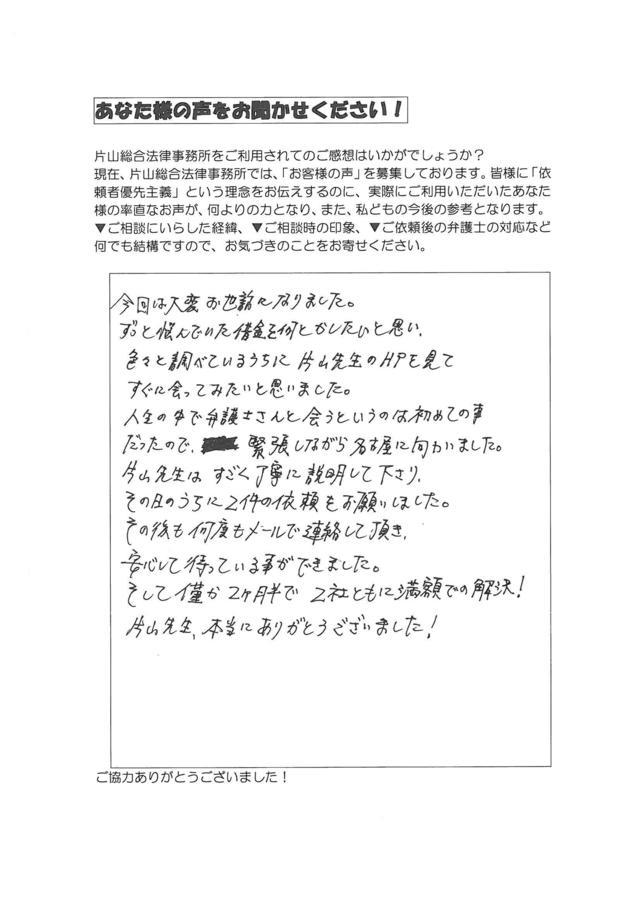 あなた様の声をお聞かせください！
片山総合法律事務所をご利用されてのご感想はいかがでしょうか？
現在、片山総合法律事務所では、「お客様の声」を募集しております。皆様に「依
頼者優先主義」という理念をお伝えするのに、実際にご利用いただいたあなた
様の率直なお声が、何よりの力となり、また、私どもの今後の参考となります。
▼ご相談にいらした経緯、▼ご相談時の印象、▼ご依頼後の弁護士の対応など
何でも結構ですので、お気づきのことをお寄せください。
今回は大変お世話になりました。
ずっと悩んでいた借金を何とかしたいと思い、
色々と調べているうちに片山先生のHPを見て
すぐに会ってみたいと思いました。
人生の中で弁護士さんと会うというのは初めての事
だったので、緊張しながら名古屋に向かいました。
片山先生はすごく丁寧に説明して下さり、
その日のうちに2件の依頼もお願いしました。
その後も何度もメールで連絡して頂き、
安心して待っている事ができました。
そして僅か2ヶ月半で2社ともに満額での解決！
片山先生、本当にありがとうございました！
ご協力ありがとうございました！